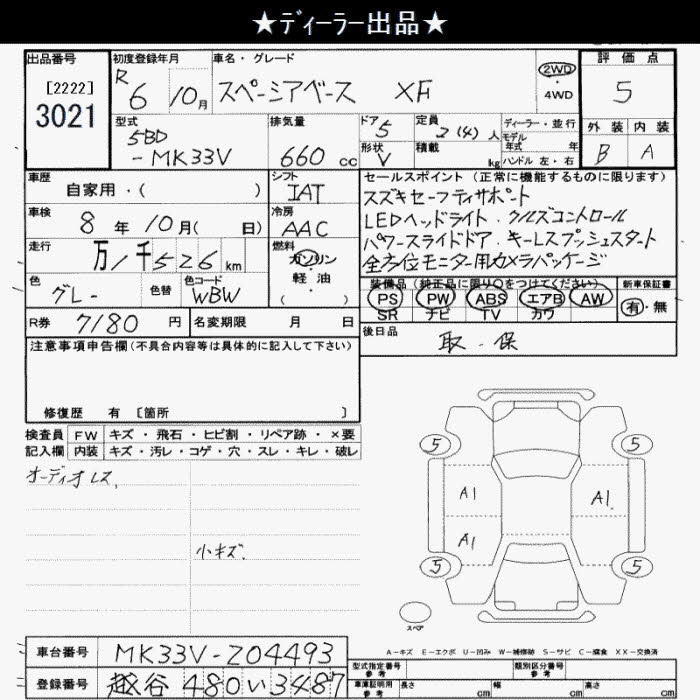 ★ディーラー出品★
出品番号
[2222]
3021
初度登録年月
R 6 10月
車名・グレード
スペーシアベース XF
2WD
・
4WD
評価点
5
外装 内装
B A
型式
5BD
-MK33V
排気量
660 cc
ドア 5
形状 V
定員 2(4) 人
積載 kg
ディーラー・並行
モデル
年式 年
ハンドル 左・右
車歴
自家用・( )
シフト
IAT
車検
8年10月( 日)
冷房
AAC
走行
万 1千526km
燃料
ガソリン
・
軽油
( )
色
グレー
色替
色コード
WBW
R券
7180円
名変期限 月 日
セールスポイント(正常に機能するものに限ります)
スズキセーフティサポート
LEDヘッドライト・クルーズコントロール
パワースライドドア・キーレスプッシュスタート
全方位モニター用カメラパッケージ
装備品(純正品に限り○をつけてください)
PS PW ABS エアB AW
SR ナビ TV カワ
新車保証書
有・無
後日品
取・保
注意事項申告欄(不具合内容等は具体的に記入して下さい)
修復歴 有 〔箇所 〕
検査員 FW キズ・飛石・ヒビ割・リペア跡・×要
記入欄 内装 キズ・汚レ・コゲ・穴・スレ・キレ・破レ
オーディオレス、
小キズ、
5 5
A1 A1
A1
5 5
スペア
A-キズ E-エクボ U-凹み W-補修跡 S-サビ C-腐食 XX-交換済
車台番号 MK33V-204493
登録番号 越谷480い3487
型式指定番号
参考
類別区分番号
参考
車庫証明用
参考
長さ cm 幅 cm 高さ cm